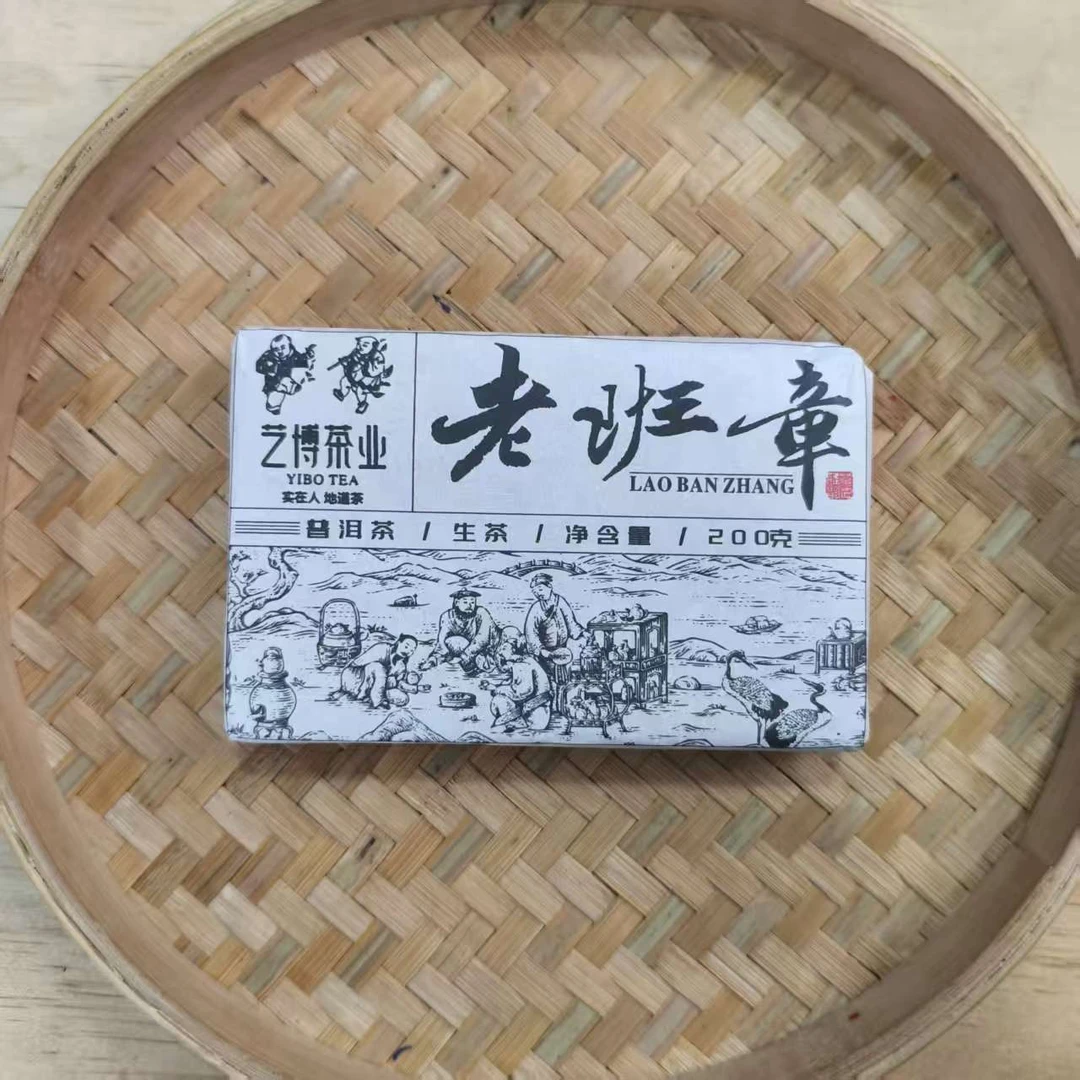 艺博茶业
YIBO TEA
实在人 地道茶
老班章
LAO BAN ZHANG
普洱茶 / 生茶 / 净含量 / 200克